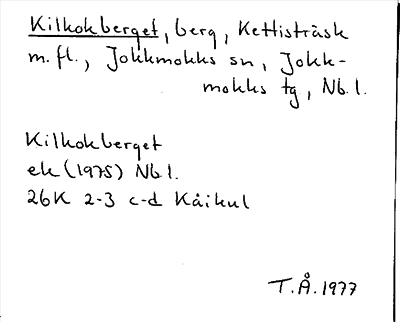 Kilkokberget, berg, Kettisträsk
m.fl., Jokkmokks sn, Jokk-
mokks tg, Nb.l.
Kilkokberget
ek (1975) Nb l.
26K 2-3 c-d Kåikul
T.Å. 1977